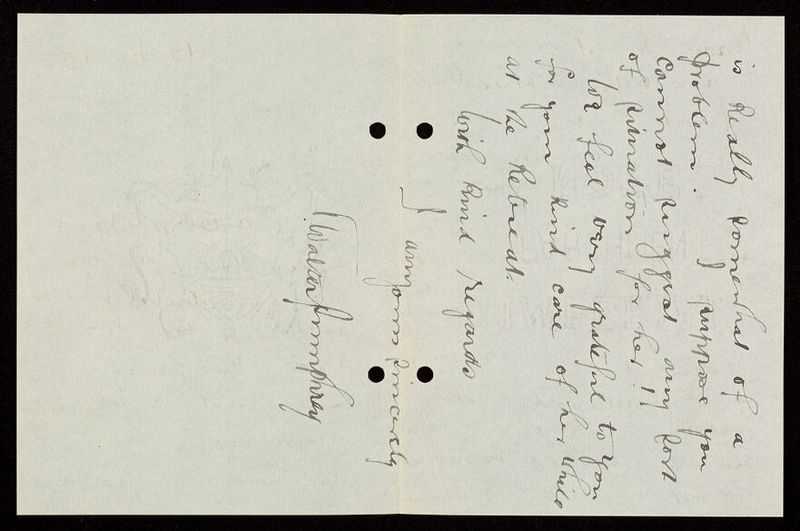 is really somewhat of a
problem. I suppose you
cannot suggest any sort
of situation for her!!
We feel very grateful to you
for your kind care of her while
at the Retreat.
With kind regards
I am yours sincerely
Walter Pumphrey